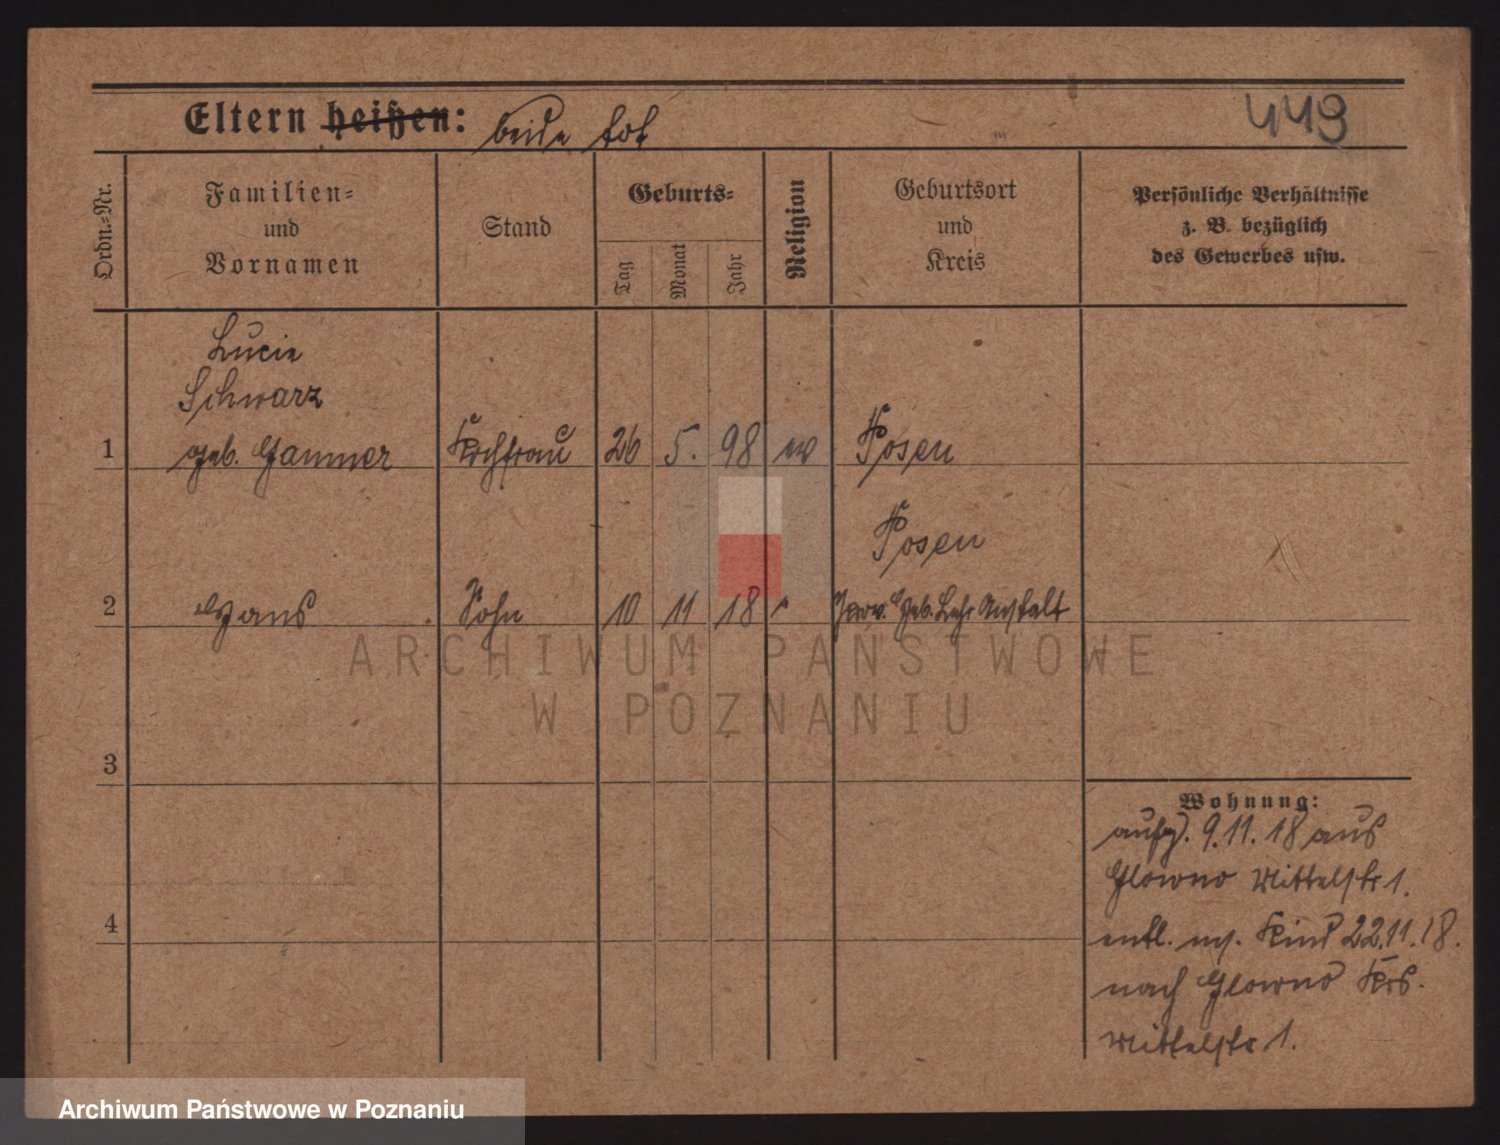 Eltern heißen: beide tot
449
Ordn.-Nr.
Familien-
und
Vornamen
Stand
Geburts-
Tag
Monat
Jahr
Religion
Geburtsort
und
Kreis
Persönliche Verhältnisse
z. B. bezüglich
des Gewerbes usw.
Lucie
Schwarz
1 geb. 26 5. 98 Posen
Posen
2 Hans Sohn 10 11 18 Prov. Heb. Lehr Anstalt
3
Wohnung:
9.11.18 aus
Glowno Mittelstr 1.
4
entl. m. Kind 22.11.18.
nach Glowno
Mittelstr 1.
ARCHIWUM PAŃSTWOWE
W POZNANIU
Archiwum Państwowe w Poznaniu